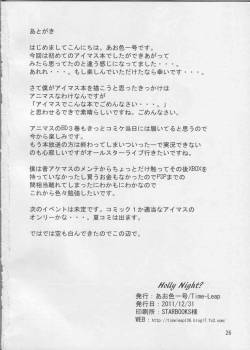 あとがき
はじめましてこんにちは。あお色一号です。
今回は初めてのアイマス本でしたができあがって
みたら思ってたのと違う感じになってました・・・。
あれれ・・・。もし楽しんでいただけたなら幸いです・・・。
さて僕がアイマス本を描こうと思ったきっかけは
アニマスなわけなんですが
「アイマスでこんな本でごめんなさい・・・。」
と思うわけでありますけれども素晴らしいですね。ごめんなさい。
アニマスのBD3巻もきっとコミケ当日には届いてると思うので
今から楽しみです。
もう本放送の方は終わってしまいついったーで実況できない
のも心寂しいですがオールスターライブ行きたいですね。
僕は昔アケマスのメンテからちょっとだけ触ってその後XBOXを
持っていなかったし買うお金もなかったのでPSPまでの
間相当離れてしまってたにわかもにわかなので
これから色々勉強したいです。
次のイベントは未定です。コミック1か適当なアイマスの
オンリーかな・・・。夏コミは出ます。
ではでは空も白んできたのでこの辺で。
Holly Night?
発行：あお色一号/Time-Leap
発行日：2011/12/31
印刷所：STARBOOKS様
26